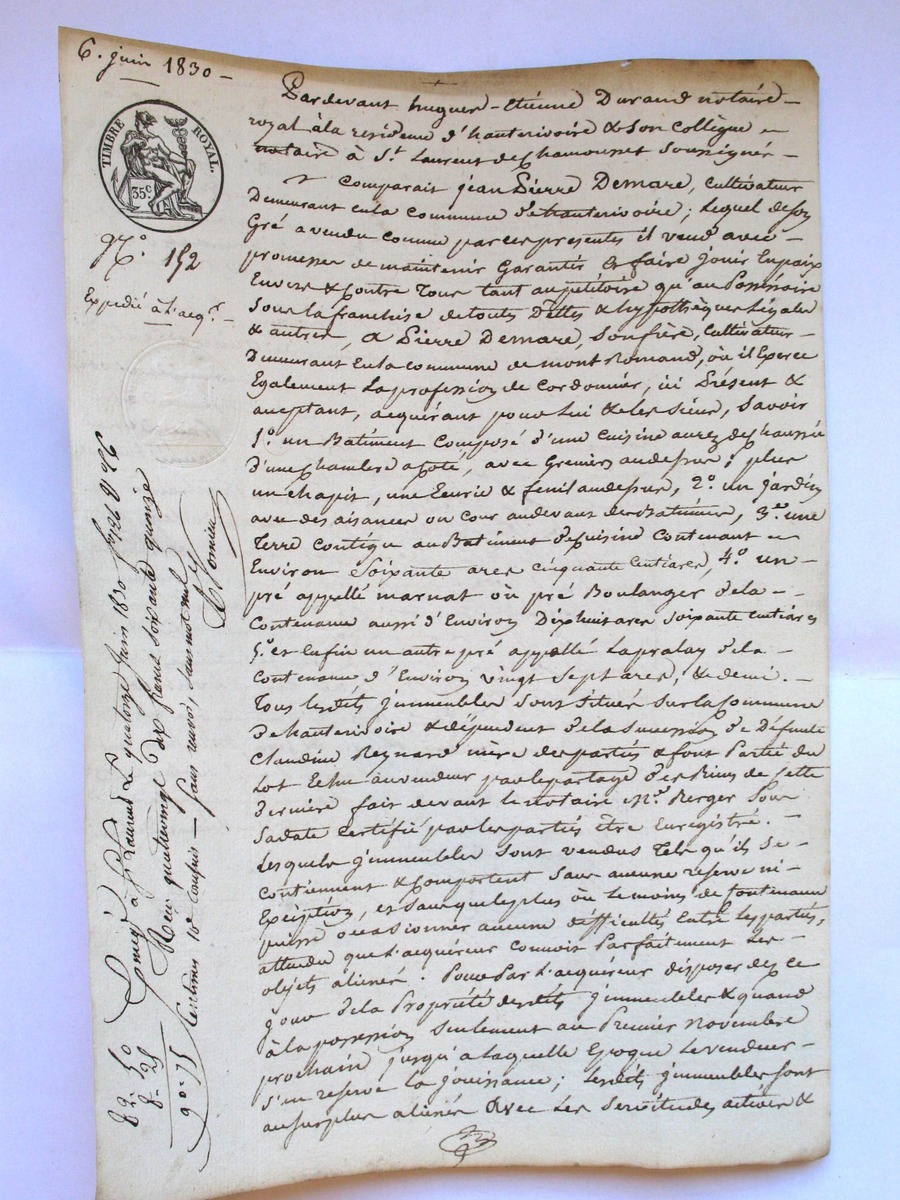 6. juin 1830 -
TIMBRE ROYAL.
35 c.
N.° 152
Expedié à l'acq.r -
Pardevant hugues-Etienne Durand notaire -
royal à la residence d'hauterivoire & son collègue
notaire à S.t Laurent de Chamousset soussignés -
Comparait jean Pierre Demare, cultivateur
Demeurant en la commune d'hauterivoire ; lequel de son
Gré a vendu comme par ces presentes il vend avec -
promesse de maintenir Garantir & faire jouir En paix
Envers & Contre Tous tant au petitoire qu'au Possessoire
sous la franchise de touts Dettes & hypothèques légales
& autres, a Pierre Demare, son frère, Cultivateur -
Demeurant En la commune de mont Romand, où il Exerce
Egalement la profession de Cordonnier, ici Présent &
acceptant, acquérant pour lui & les sieur, savoir
1.° un Batiment Composé d'une cuisine au rez de chaussée
d'une chambre a coté, avec Greniers au dessus ; plus
un chapit, une Ecurie & fenil au dessus, 2.° un Jardin
avec des aisances ou cour au devant des Batiments, 3.° une
Terre Contigue au Batiment de cuisine Contenant
Environ soixante ares cinquante centiares, 4.° un -
pré appellé marnat où pré Boulanger de la -
Contenance aussi d'Environ Dix huit ares soixante centiares
5.° et Enfin un autre pré appellé Lapralay de la
Contenance d'Environ vingt sept ares, & demi. -
Tous lesdits jmmeubles sont situés sur la Commune
d'hauterivoire & dépendent de la succession de Défunte
Claudine Reynard mère des parties & font Partie du
Lot Echu au vendeur par le partage des Biens de Cette
Dernière fait devant le notaire M.e Berger sous
sa date Certifié par les parties être Enregistré. -
Lesquels jmmeubles sont vendus Tels qu'ils se -
contiennent & Comportent sans aucune reserve ni -
Exception, et sans que le plus où le moins de Contenance
puisse occasionner aucune difficultés Entre les parties,
attendu que l'acquéreur connoit Parfaitement les -
objets aliénés. Pour Par l'acquéreur disposer dès ce
jour de la Propriété desdits jmmeubles & quand
à la possession seulement au Premier novembre
prochain jusqu'a laquelle Epoque le vendeur -
s'en reserve la jouissance ; lesdits jmmeubles sont
au surplus aliénés Avec les servitudes actives &
Enreg.é à S.t Laurent Le quatorze Juin 1830
Recu quatrevingt dix francs soixante quinze
Centimes 10.e Compris - sans renvoi, sans mot nul
82 - 50
8 - 25
90 = 75